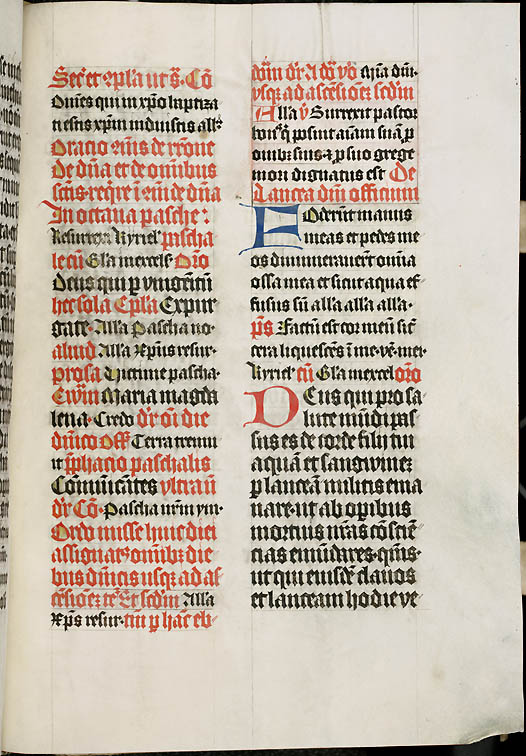 Secret et 9pla ut sͣ. Cō
Om̄es qui in xp̄o baptiza
ti estis xp̄m induistis all̄a
Oratio un̄s de r̄r̄one
de dn̄a et de om̄ibus
sc̄tis req̄re ī un̄ide dn̄a
In octaua pasche:
Resurrexi Kyriel̄ pascha
le cū Gl̄a in excels̄ Oro
Deus qui per vnigenitū
hec sola Ep̄la Expur
gate. All̄a Pascha no.
aliud All̄a Xp̄us resur.
prosa Victime pascha.
Ew̄m Maria magda
lena. Credo dr̄ oī die
dn̄ico Off̄ Terra tremu
it p̄phacio paschalis
Com̄unicātes vltra n̄
dr̄ Cō. Pascha nr̄m ym.
Ordo misse huic diei
assignat9 om̄ibz die
bus dn̄icis usqz ad as
cēsiōez tē Et scdm̄ All̄a
Xp̄s resur. tm̄ p hac̄ eb-
dōm dr̄ A dō vō alia dn̄i.
vsqz ad ascēsiōez scdm̄
All̄a v̄ Surrexit pastor
bon9 q̄ posuit aīam suā p
ouibz suis et p suo grege
mori dignatus est De
Lancea dn̄i officium
Foderūt manus
meas et pedes me
os dinumerauerūt om̄ia
ossa mea et sicut aqua ef-
fusus sū all̄a all̄a all̄a.
p̄s Factū est cor meū sic̄
cera liquescēs ī me. vē. mei.
Kyriel̄ cū Gl̄a in excel oro
Deus qui pro sa
lute mūdi pas
sus es de corde filij tui
aquā et sangwinez
p lanceā militis ema
nare. ut ab opibus
mortuis nr̄as cōsciē
cias emūdares. q̄sum9.
ut qui eiusdē clauos
et lanceam hodie ve-